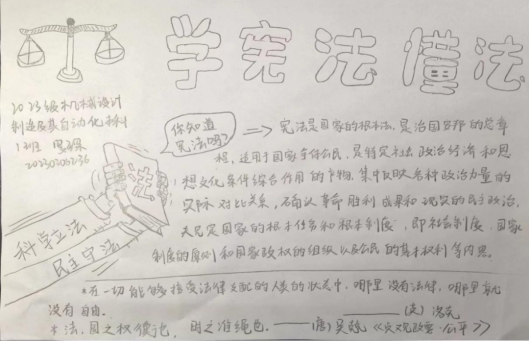 学宪法懂法
2023级机械设计
制造及其自动化本科
1班
你知道
宪法吗?
法
科学立法
民主守法
=> 宪法是国家的根本法,是治国安邦的总章
程,适用于国家全体公民,是特定社会政治经济和思
想文化条件综合作用的产物,集中反映各种政治力量的
实际对比关系,确认革命胜利成果和现实的民主政治,
规定国家的根本任务和根本制度,即社会制度、国家
制度的原则和国家政权的组织以及公民的基本权利等内容。
*在一切能够接受法律支配的人类的状态中,哪里没有法律,哪里就
没有自由。
——(英)洛克
*法,国之权衡也,时之准绳也。——(唐)吴兢《贞观政要·公平》